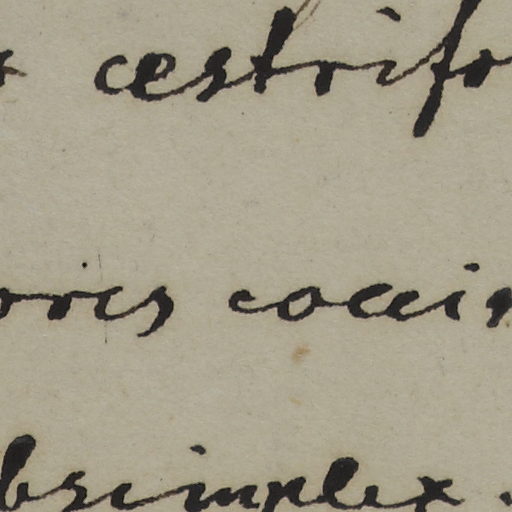 cestrifo
ores coccin
bsimplex.